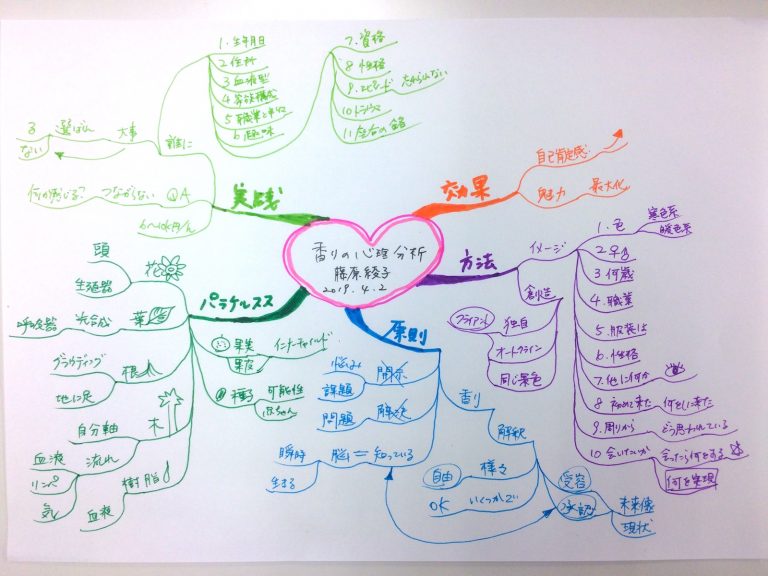 香りの心理分析
藤原綾子
2019.4.2
効果
自己肯定感
魅力
最大化
方法
イメージ
1.色
寒色系
暖色系
2.♀♂
3 何歳
4.職業
5.服装は
6.性格
7.他に何か
8 初めて来た
何をしに来た
9.周りから
どう思われている
10 会いたいか
会ったら何をする
何を実現
創造
クライアント
独自
オートクライン
同じ景色
原則
悩み
開示
課題
問題
解決
瞬時
生まる
脳
=
知っている
香り
解釈
自由
様々
OK
いくつかでい
受容
承認
未来像
現状
パラケルスス
花
頭
生殖器
葉
光合成
呼吸器
根
グラウディング
地に足
木
自分軸
流れ
血液
リンパ
気
樹脂
血液
果実
果皮
インナーチャイルド
種子
可能性
実践
誰に
1.生年月日
2 住所
3 血液型
4 家族構成
6 趣味
7.資格
8 性格
9.エピソード
10 トラウマ
大事
選ばない
る
QA
つながらない
何が感じる?